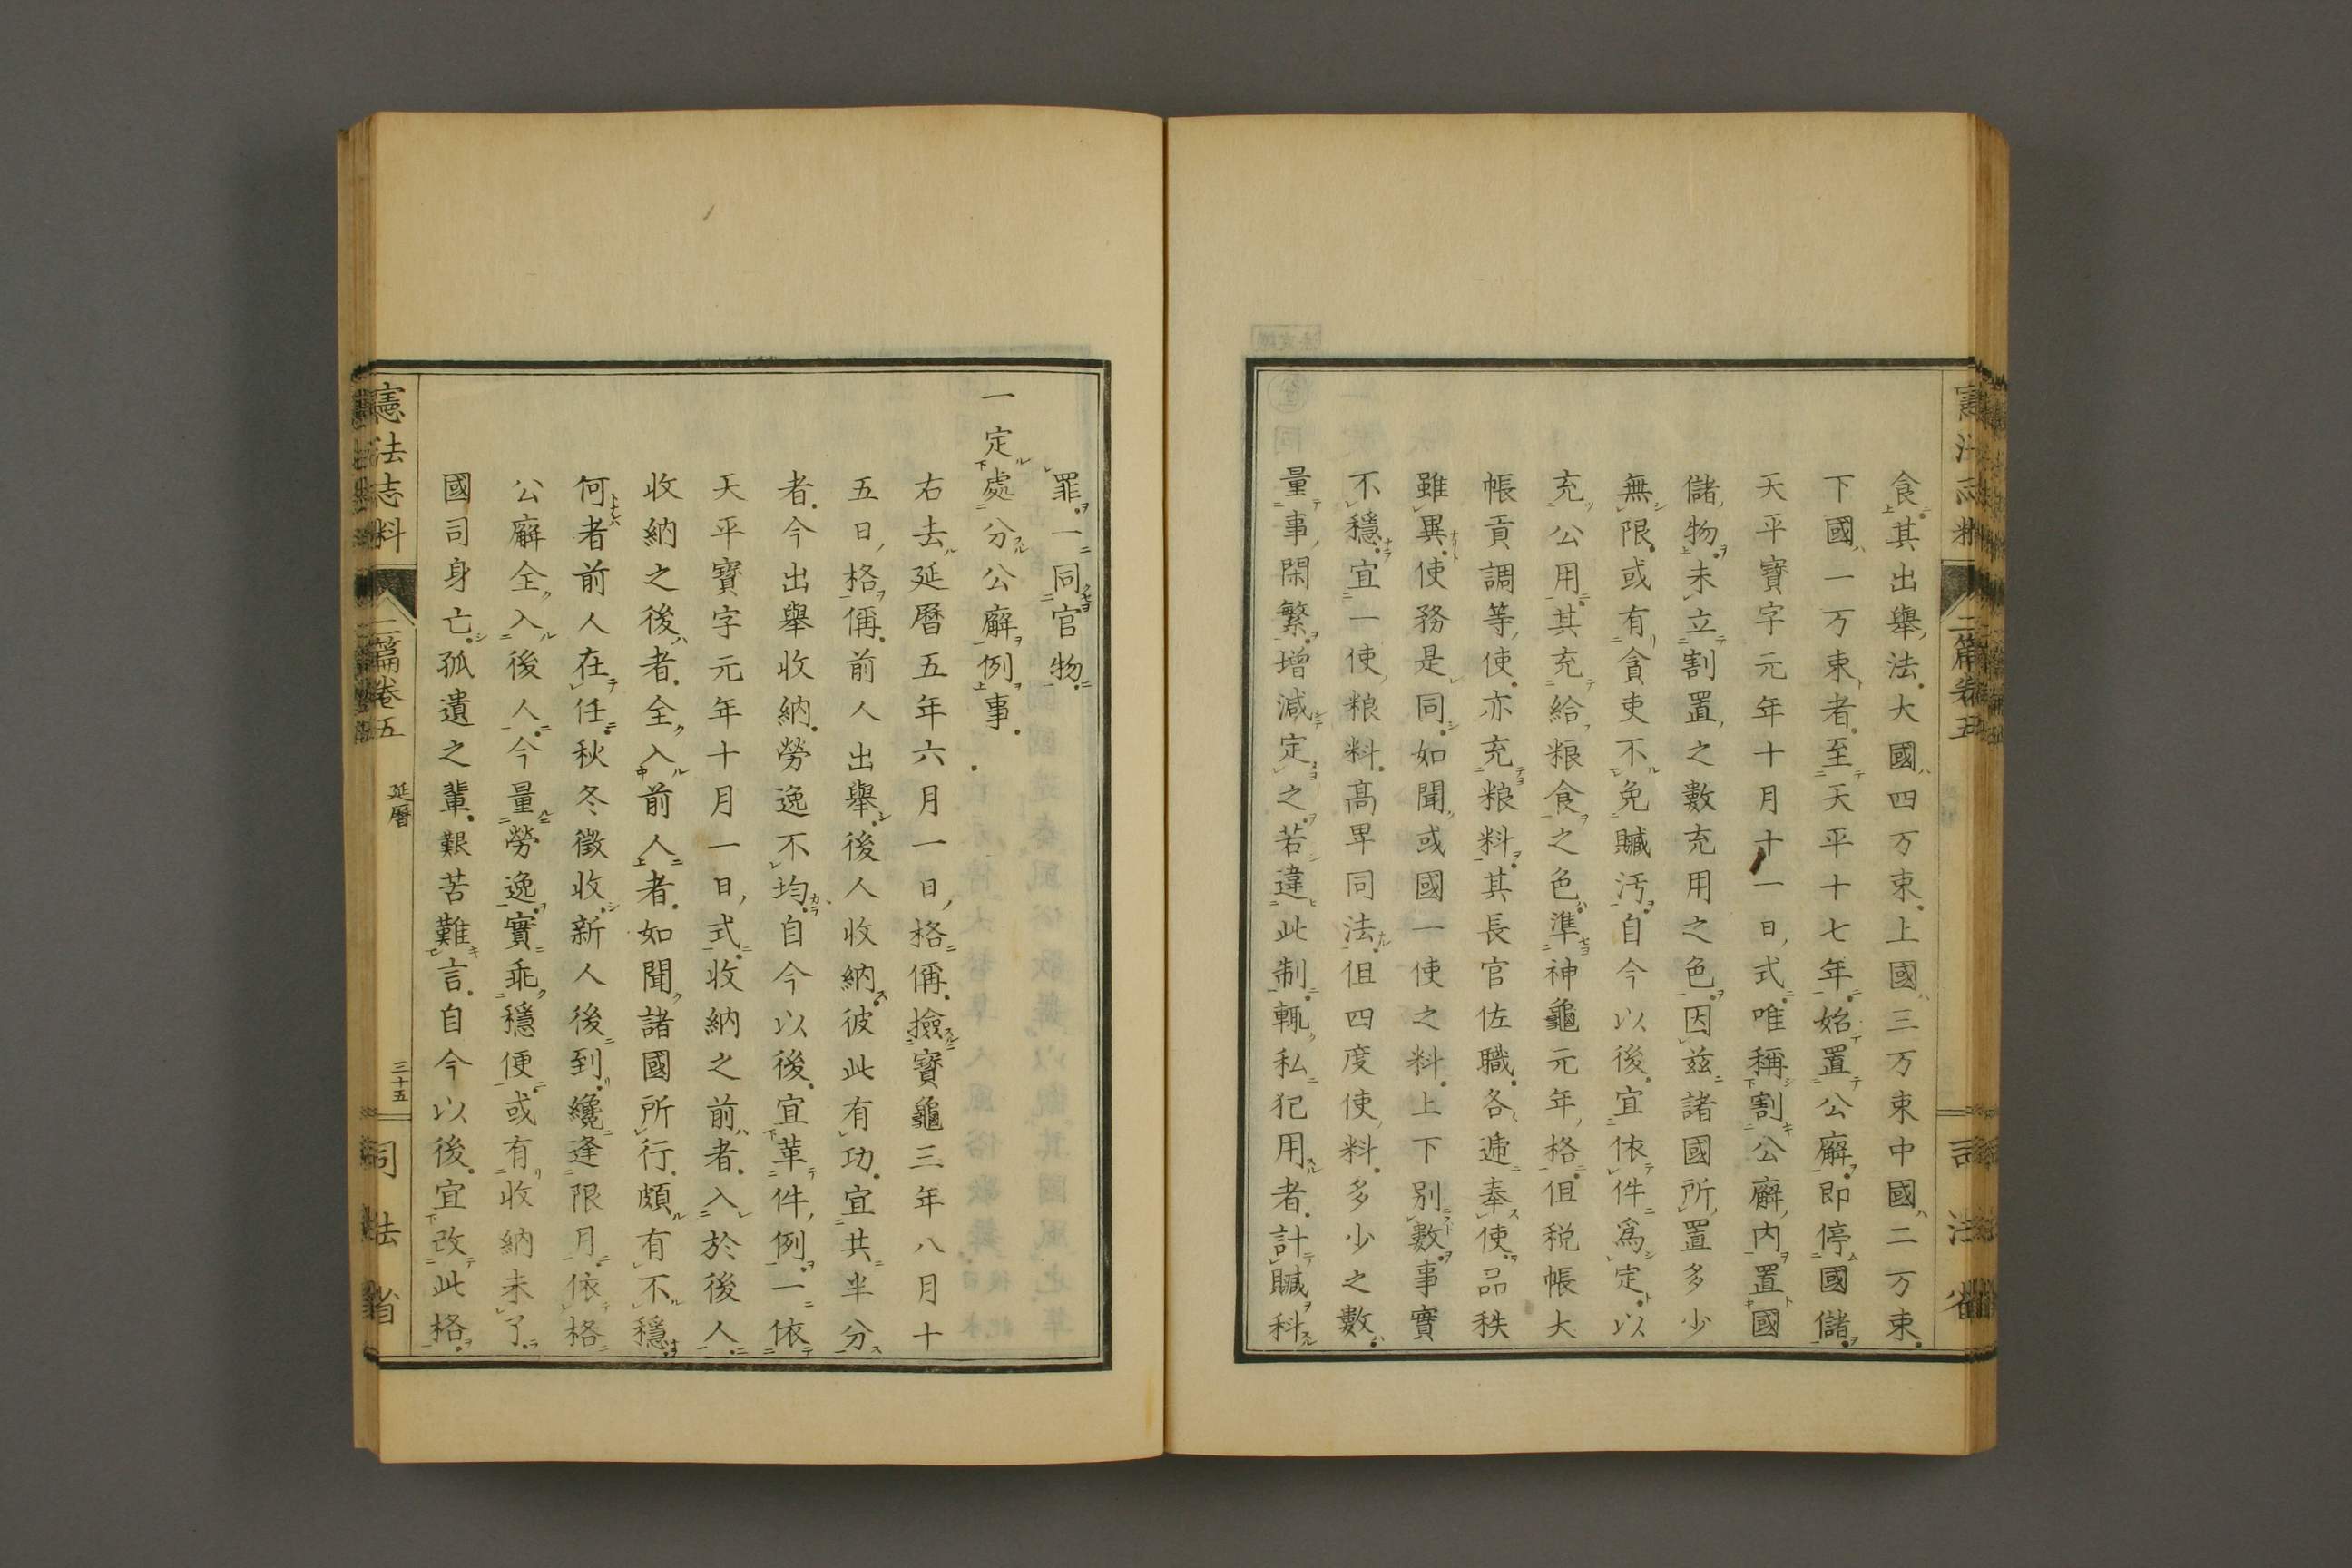 食其出舉法大國四万束上國三万束中國二万束
下國一万束者至天平十七年始置公廨即停國儲
天平寶字元年十月十一日式唯稱割公廨内置國
儲物未立割置之數充用之色因茲諸國所置多少
無限或有貪吏不免贓汚自今以後宜依件爲定以
充公用其充給粮食之色準神龜元年格但税帳大
帳貢調等使亦充粮料其長官佐職各遞奉使品秩
雖異使務是同如聞或國一使之料上下別數事實
不穩宜一使粮料高卑同法但四度使料多少之數
量事閑繁増減定之若違此制輙私犯用者計贓科
罪一同官物
一定處分公廨例事
右去延曆五年六月一日格偁撿寶龜三年八月十
五日格偁前人出舉後人收納彼此有功宜共半分
者今出舉收納勞逸不均自今以後宜革件例一依
天平寶字元年十月一日式收納之前者入於後人
收納之後者全入前人者如聞諸國所行頗有不穩
何者前人在任秋冬徵收新人後到纔逢限月依格
公廨全入後人今量勞逸實乖穩便或有收納未了
國司身亡孤遺之輩艱苦難言自今以後宜改此格
憲法志料
二篇卷五
延曆
三十五
司法省